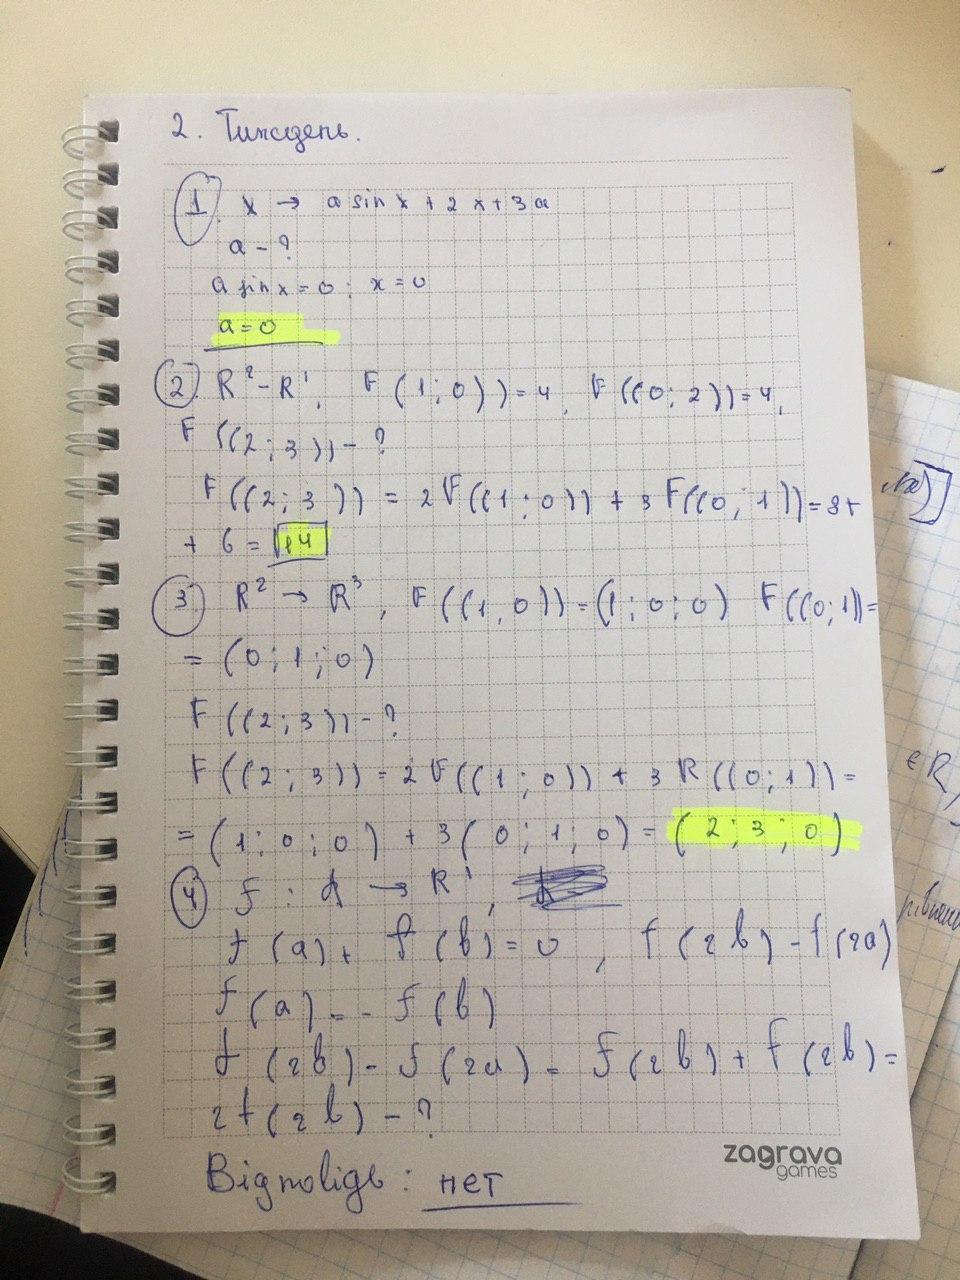 2. Тиждень.
1. x → a sin x + 2x + 3a
a - ?
a sin x = 0 ; x = 0
a = 0
2. R² - R¹, F(1;0)) = 4, F((0;2)) = 4,
F((2;3)) - ?
F((2;3)) = 2F((1;0)) + 3F((0;1)) = 8+
+ 6 = 14
3. R² → R³, F((1,0)) = (1;0;0) F((0;1)) =
= (0;1;0)
F((2;3)) - ?
F((2;3)) = 2F((1;0)) + 3R((0;1)) =
= (1;0;0) + 3(0;1;0) = (2;3;0)
4. f : → R¹,
f(a) + f(b) = 0, f(2b) - f(2a)
f(a) = - f(b)
f(2b) - f(2a) = f(2b) + f(2b) =
2f(2b) - ?
zagrava
games
Відповідь: нет
∈ R,